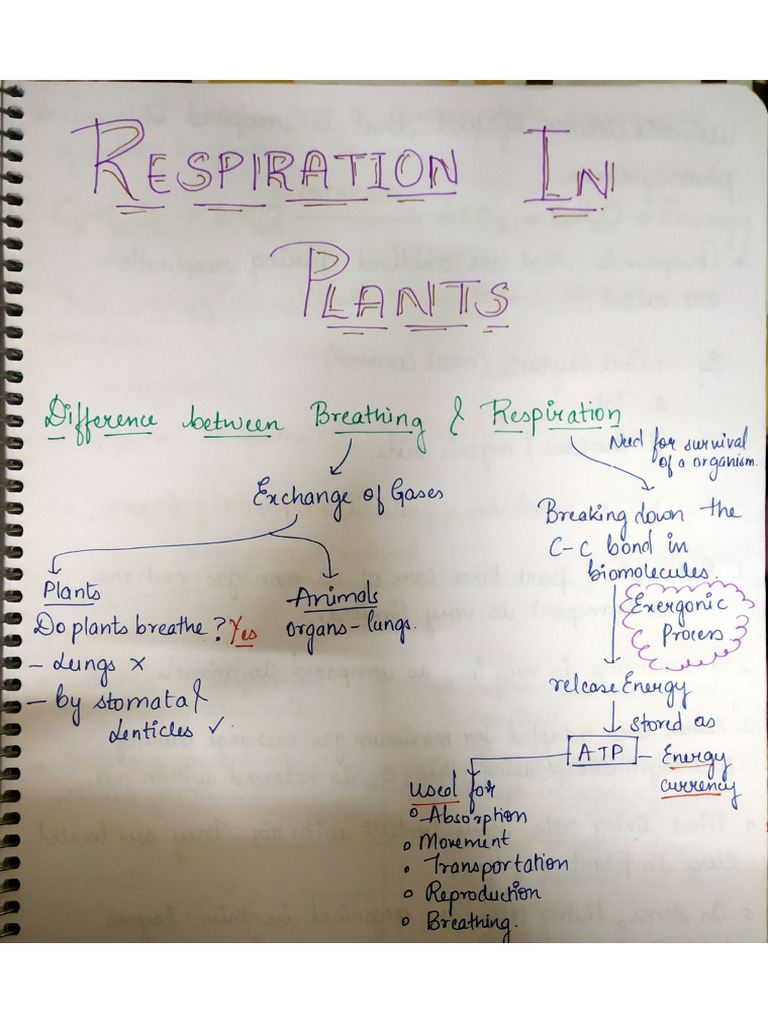 RESPIRATION IN
PLANTS
Difference between Breathing & Respiration
Need for survival
of a organism.
Exchange of Gases
Breaking down the
C-C bond in
biomolecules.
Plants
Do plants breathe? Yes
- Lungs ×
- by stomata &
lenticles ✓
Animals
organs - lungs.
Exergonic
Process
release Energy
stored as
ATP - Energy
currency
Used for
Absorption
Movement
Transportation
Reproduction
Breathing.